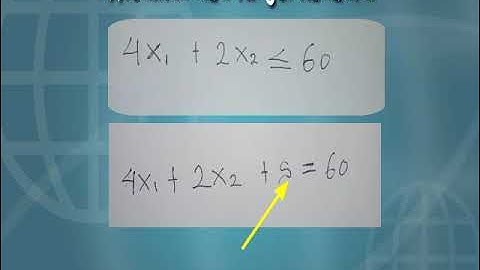 4x₁ + 2x₂ ≤ 60
4x₁ + 2x₂ + S = 60